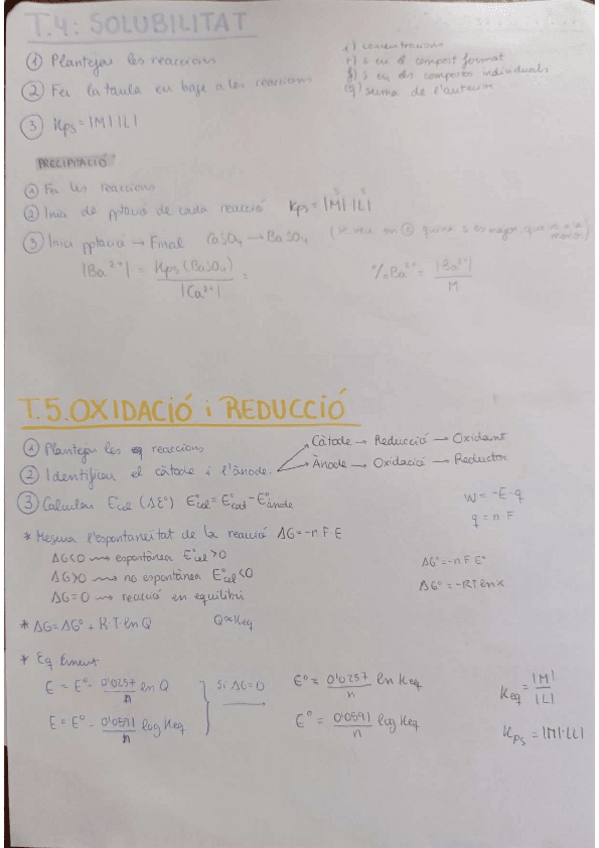 T.4: SOLUBILITAT
① Plantejar les reaccions
② Fer la taula en base a les reaccions
i) concentracions
r) s en el compost format
f) s en els compostos individuals
q) suma de l'anterior
③ Kps = |M| |L|
PRECIPITACIÓ:
① Fer les reaccions
② Inici de pptació de cada reacció Kps = |M| |L|
③ Inici pptació → Final CaSO4 → BaSO4 (se veu en ② quina s es major, que va a la
|Ba²⁺| = Kps (BaSO4) / |Ca²⁺| =
% Ba²⁺ = |Ba²⁺| / M
T.5. OXIDACIÓ i REDUCCIÓ
① Plantejar les reaccions
② Identificar el càtode i l'ànode.
Càtode → Reducció → Oxidant
Ànode → Oxidació → Reductor
③ Calcular Ecel (ΔE°) E°cel = E°cat - E°ànode
W = -E·q
q = n·F
* Mesura l'espontaneitat de la reacció ΔG = -n F E
ΔG<0 → espontànea E°cel >0
ΔG>0 → no espontànea E°cel <0
ΔG=0 → reacció en equilibri
ΔG° = -n F E°
ΔG° = -RT ln K
* ΔG = ΔG° + R·T·ln Q Q≈Keq
* Eq Nernst
E = E° - 0'0257/n ln Q
E = E° - 0'0591/n log Keq
Si ΔG=0
E° = 0'0257/n ln Keq
E° = 0'0591/n log Keq
Keq = |M| / |L|
Kps = |M|·|L|